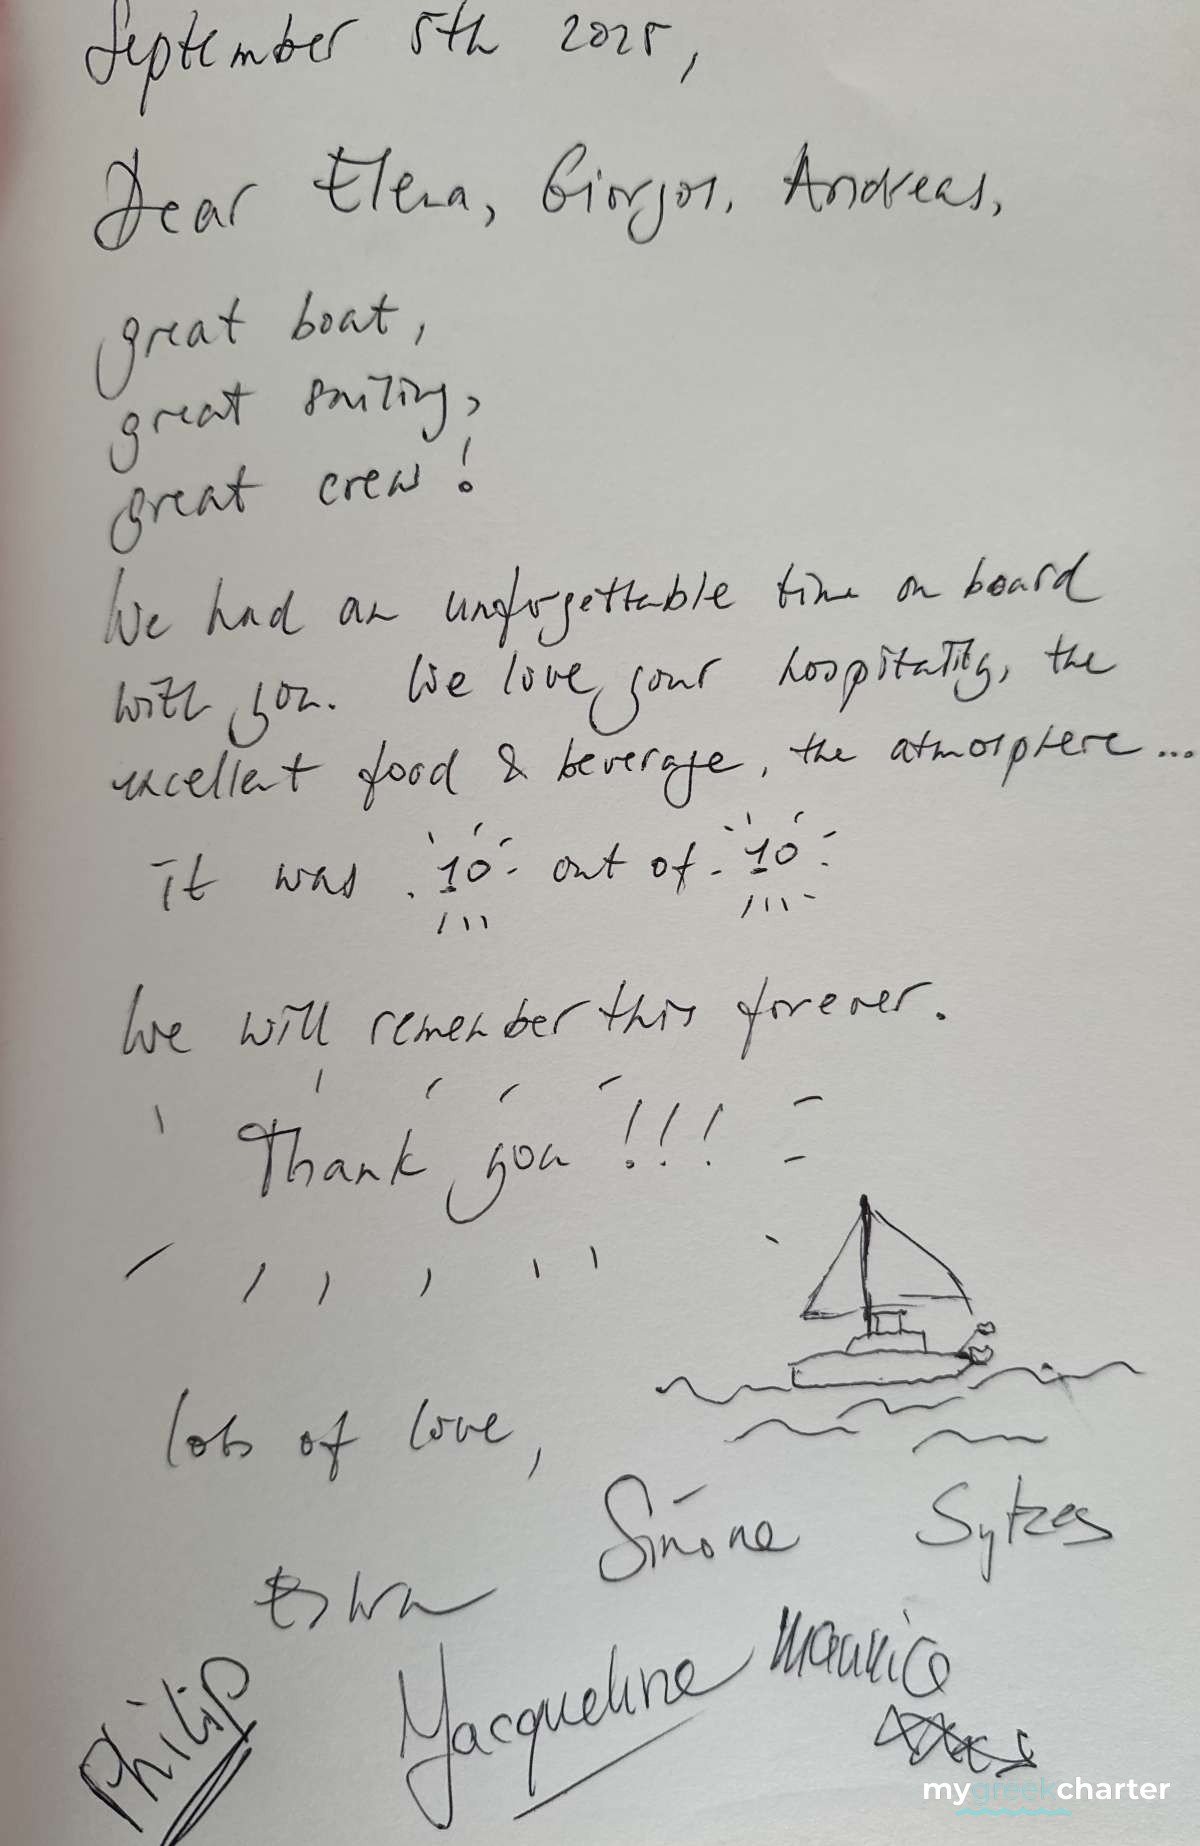 September 5th 2025,
Dear Elena, Giorgos, Andreas,
great boat,
great sailing,
great crew!
We had an unforgettable time on board
with you. We love your hospitality, the
excellent food & beverage, the atmosphere...
it was 10 out of 10
We will remember this forever.
Thank you!!!
lots of love,
Simone Sytzes
Jacqueline Maurice
Philip
mygreekcharter